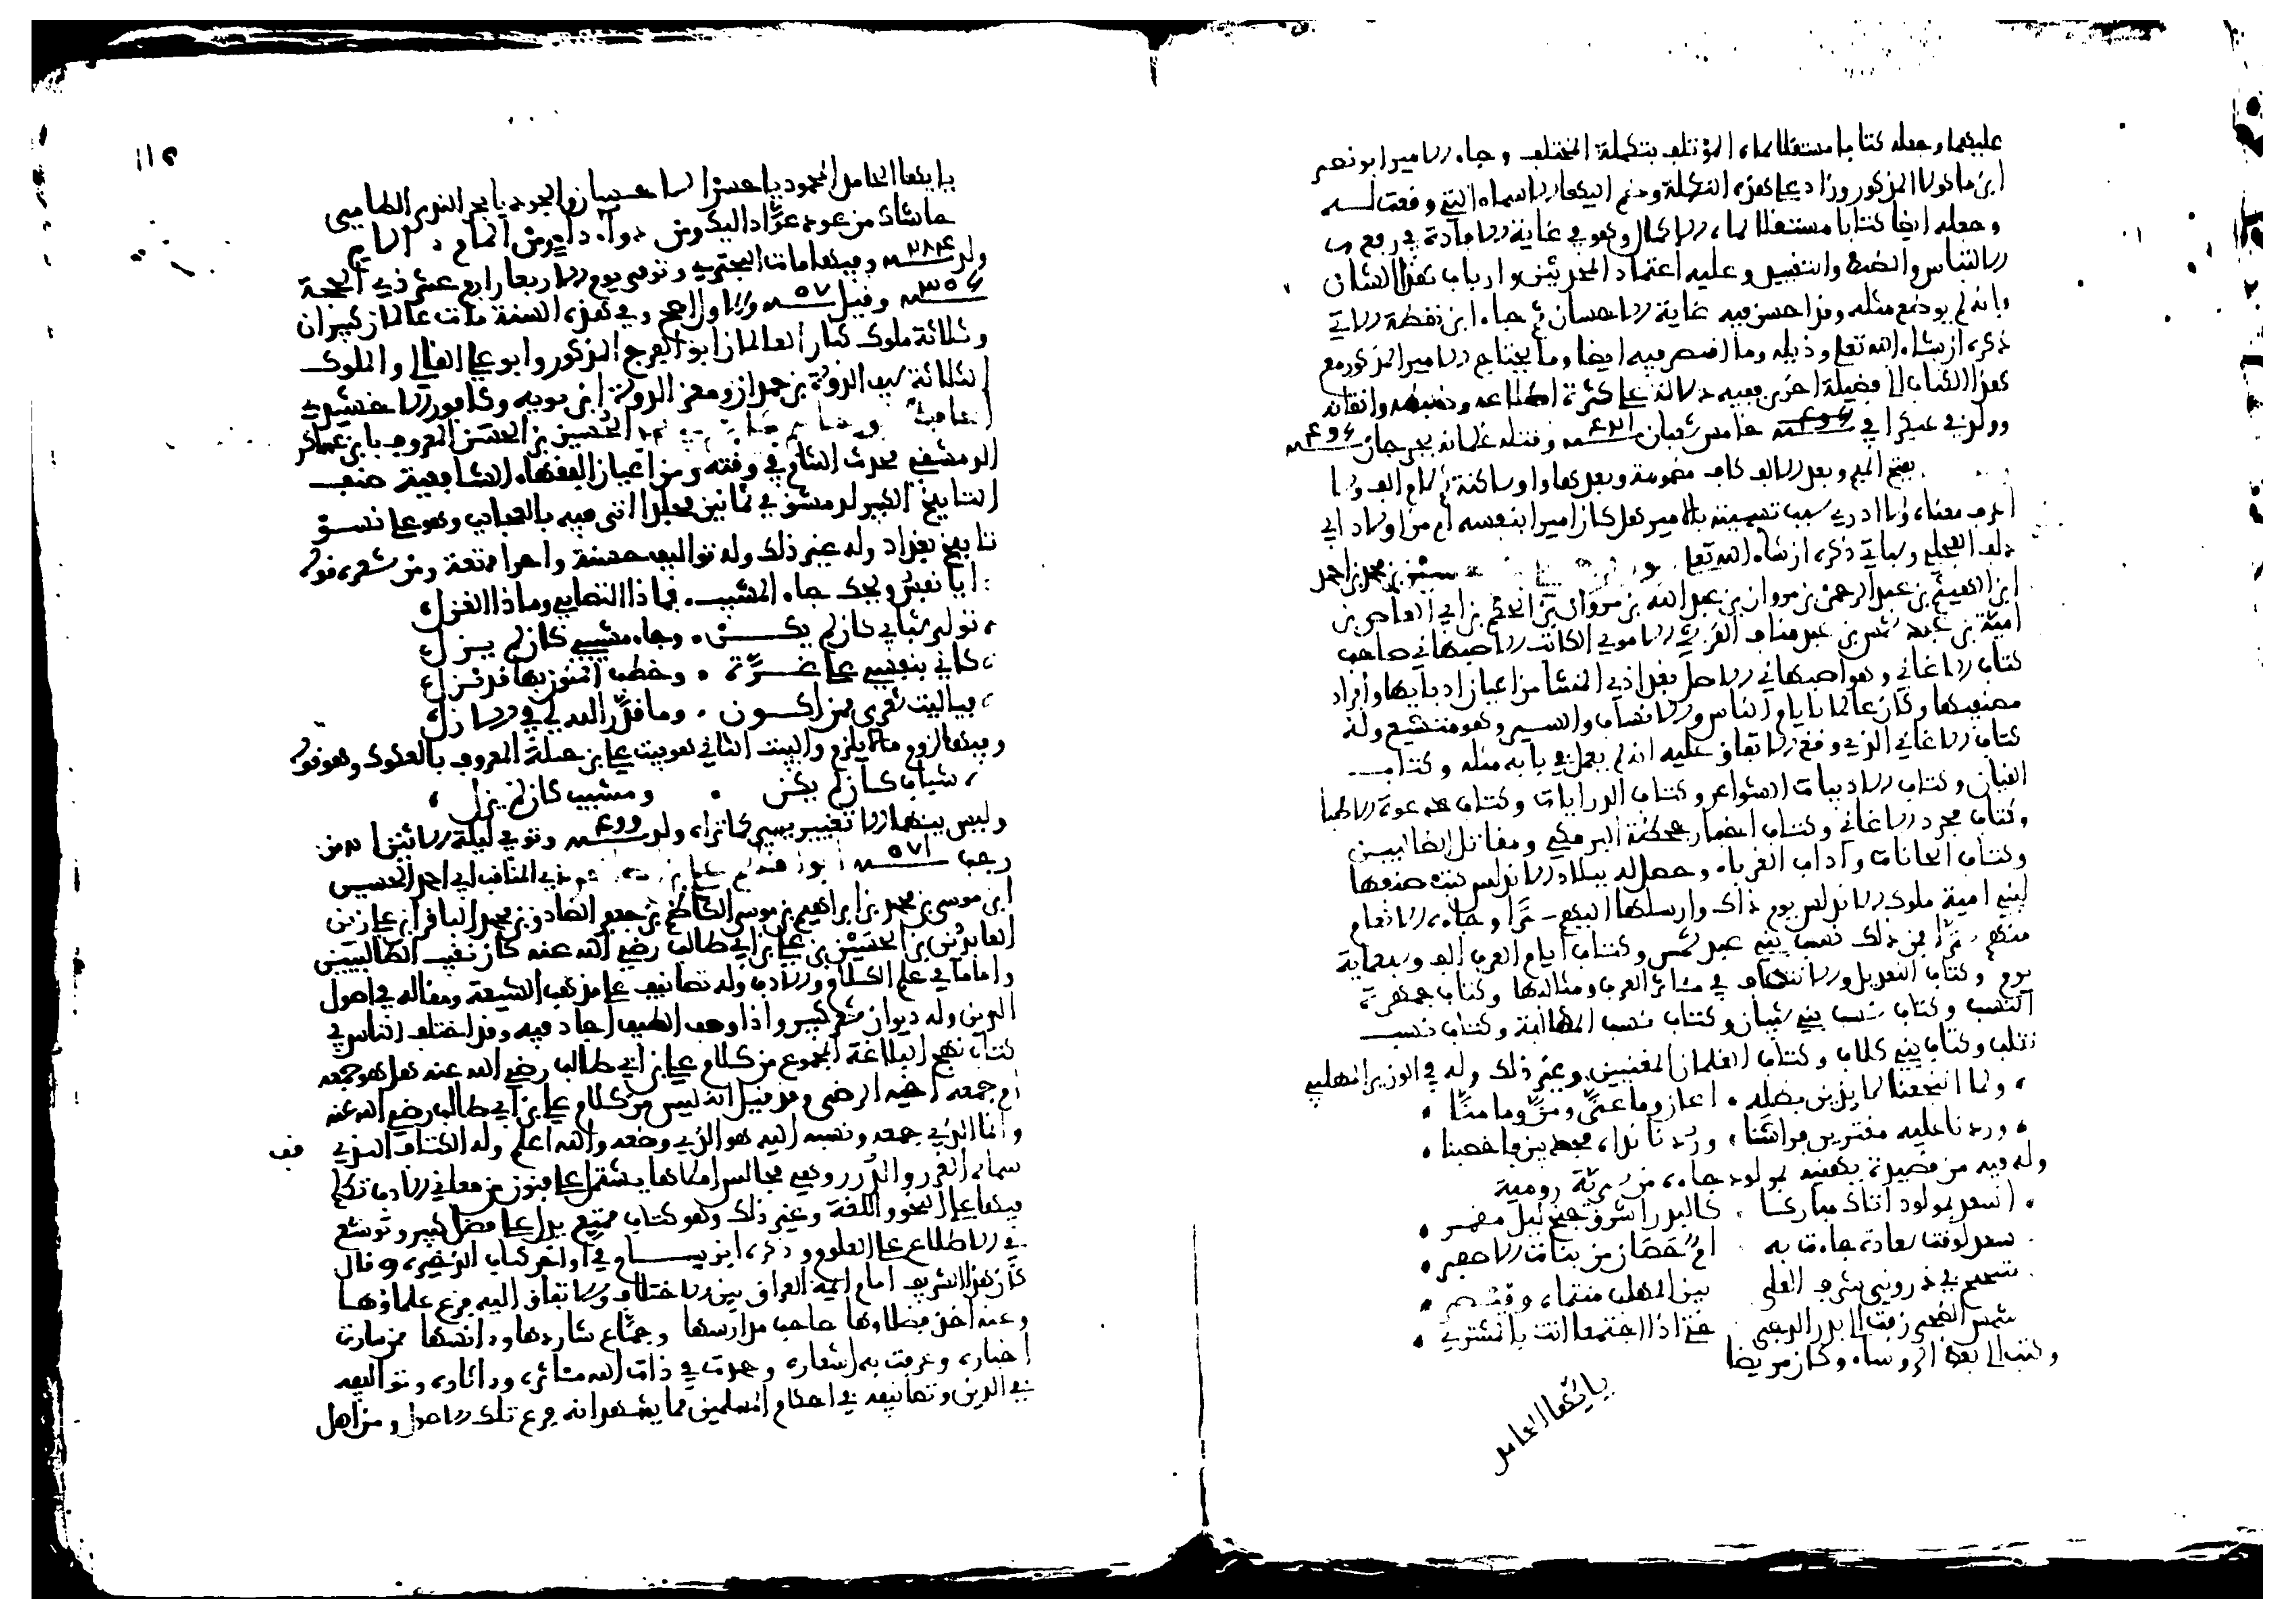 عليهما وجعله كتابا مستقلا سماه المؤتلف بتكملة المختلف وجاء الامير ابو نصر
ابن ماكولا المذكور وزاد على هذه التكلة وضم اليها الاسماء التي وقعت له
وجعله ايضا كتابا مستقلا سماه الاكمال وهو في غاية الافادة في رفع
الالتباس والضبط والتقييد وعليه اعتماد المحدثين وارباب هذا الشان
وانه لم يوضع مثله وقد احسن فيه غاية الاحسان ثم جاء ابن نقطة الاتي
ذكره ان شاء الله تعلى وذيله وما اقصر فيه ايضا وما يحتاج الامير المذكور مع
هذا الكتاب الى فضيلة اخرى ففيه دلالة على كثرة اطلاعه وضبطه واتقانه
وولد في عكبرا في خامس شعبان وقتله غلمانه بجرجان
بفتح الميم وبعد الالف كاف مضمومة وبعدها واو ساكنة ثم لام الف ولا
اعرف معناه ولا ادري سبب تسميته بالامير هل كان اميرا بنفسه ام من اولاد ابي
دلف العجلي وسياتي ذكره ان شاء الله تعلى بن محمد بن احمد
ابن الهيثم بن عبد الرحمن بن مروان بن عبد الله بن مروان بن الحكم بن ابي العاصي بن
امية بن عبد شمس بن عبد مناف القرشي الاموي الكاتب الاصبهاني صاحب
كتاب الاغاني وهو اصبهاني الاصل بغداذي المنشا من اعيان ادبايها وافراد
مصنفيها وكان عالما بايام الناس والانساب والسير وهو متشيع وله
كتاب الاغاني الذي وقع الاتفاق عليه انه لم يعمل في بابه مثله وكتاب
القيان وكتاب الاديبات الشواعر وكتاب الديارات وكتاب دعوة الاطبا
وكتاب مجرد الاغاني وكتاب اخبار جحظة البرمكي ومقاتل الطالبيين
وكتاب الحانات وآداب الغرباء وحصل له ببلاد الاندلس كتب صنفها
لبني امية ملوك الاندلس يوم ذاك وارسلها اليهم سرا وجاءه الانعام
منهم سرا فمن ذلك نسب بني عبد شمس وكتاب ايام العرب الف وسبعماية
يوم وكتاب التعديل والانتصاف في مآثر العرب ومثالبها وكتاب جمهرة
النسب وكتاب نسب بني شيبان وكتاب نسب المهالبة وكتاب نسب
تغلب وكتاب بني كلاب وكتاب الغلمان المغنيين وغير ذلك وله في الوزير المهلبي
ولما انتجعنا لايذين بظله . اعان وما عنى ومن وما منا
وردنا عليه مقترين فراشنا . وردنا نداه مجدبين فاخصبنا
وله فيه من قصيدة يهنيه بمولود جاءه من سرية رومية
اسعد بمولود اتاك مباركا . كالبدر اشرق جنح ليل مقمر
سعد لوقت سعادة جاءت به . ام حصان من بنات الاصفر
متبحبح في ذروتي شرف العلى . بين المهلب منتماه وقيصر
شمس الضحى زفت الى بدر الدجى . حتى اذا اجتمعا اتت بالمشتري
وكتب الى بعض الروساء وكان مريضا
يا ايها العامل
١١٢
يا ايها العامل المحمود يا حسن الاحسان والجود يا بحر الندى الطامي
حاشاك من عود عواد اليك ومن دواء داء ومن المام الام
ولد وفيها مات البحتري وتوفي يوم الاربعا رابع عشر ذي الحجة
وقيل والاول اصح وفي هذه السنة مات عالمان كبيران
وثلاثة ملوك كبار العالمان ابو الفرج المذكور وابو علي القالي والملوك
الثلاثة سيف الدولة بن حمدان ومعز الدولة ابن بويه وكافور الاخشيدي
الحافظ الحسين بن الحسن المعروف بابن عساكر
الدمشقي محدث الشام في وقته ومن اعيان الفقهاء الشافعية صنف
التاريخ الكبير لدمشق في ثمانين مجلدا اتى فيه بالعجايب وهو على نسق
تاريخ بغداد وله غير ذلك وله تواليف حسنة واجزا ممتعة ومن شعره قوله
ايا نفس ويحك جاء المشيب . فماذا التصابي وماذا الغزل
تولى شبابي كان لم يكن . وجاء مشيبي كان لم يزل
كاني بنفسي على غرة . وخطب المنون بها قد نزل
فيا ليت شعري ممن اكون . وما قدر الله لي في الازل
وفيها لزوم ما لا يلزم والبيت الثاني هو بيت علي بن جبلة المعروف بالعكوك وهو قوله
شباب كان لم يكن . ومشيب كان لم يزل
وليس بينهما الا تغيير يسير كما تراه ولد وتوفي ليلة الاثنين من
رجب ابو القسم علي بن ذي المناقب ابي احمد الحسين
ابن موسى بن محمد بن ابراهيم بن موسى الكاظم بن جعفر الصادق بن محمد الباقر بن علي زين
العابدين بن الحسين بن علي بن ابي طالب رضي الله عنه كان نقيب الطالبيين
واماما في علم الكلام والادب وله تصانيف على مذهب الشيعة ومقاله في اصول
الدين وله ديوان شعر كبير واذا وصف الطيف اجاد فيه وقد اختلف الناس في
كتاب نهج البلاغة المجموع من كلام علي بن ابي طالب رضي الله عنه هل هو جمعه
ام جمعه اخيه الرضى وقد قيل انه ليس من كلام علي بن ابي طالب رضي الله عنه
وانما الذي جمعه ونسبه اليه هو الذي وضعه والله اعلم وله الكتاب الذي
قف
سماه الغرر والدرر وهي مجالس املاها يشتمل على فنون من معاني الادب تكلم
فيها على النحو واللغة وغير ذلك وهو كتاب ممتع يدل على فضل كبير وتوسع
في الاطلاع على العلوم وذكره ابن بسام في اواخر كتاب الذخيرة وقال
كان هذا الشريف امام ايمة العراق بين الاختلاف والاتفاق اليه فزع علماؤها
وعنه اخذ فضلاوها صاحب مدارسها وجماع شاردها وءانسها ممن سارت
اخباره وعرفت به اشعاره وحمدت في ذات الله مئاثره وءاثاره وتواليفه
في الدين وتصانيفه في احكام المسلمين مما يشهد انه فرع تلك الاصول ومن اهل